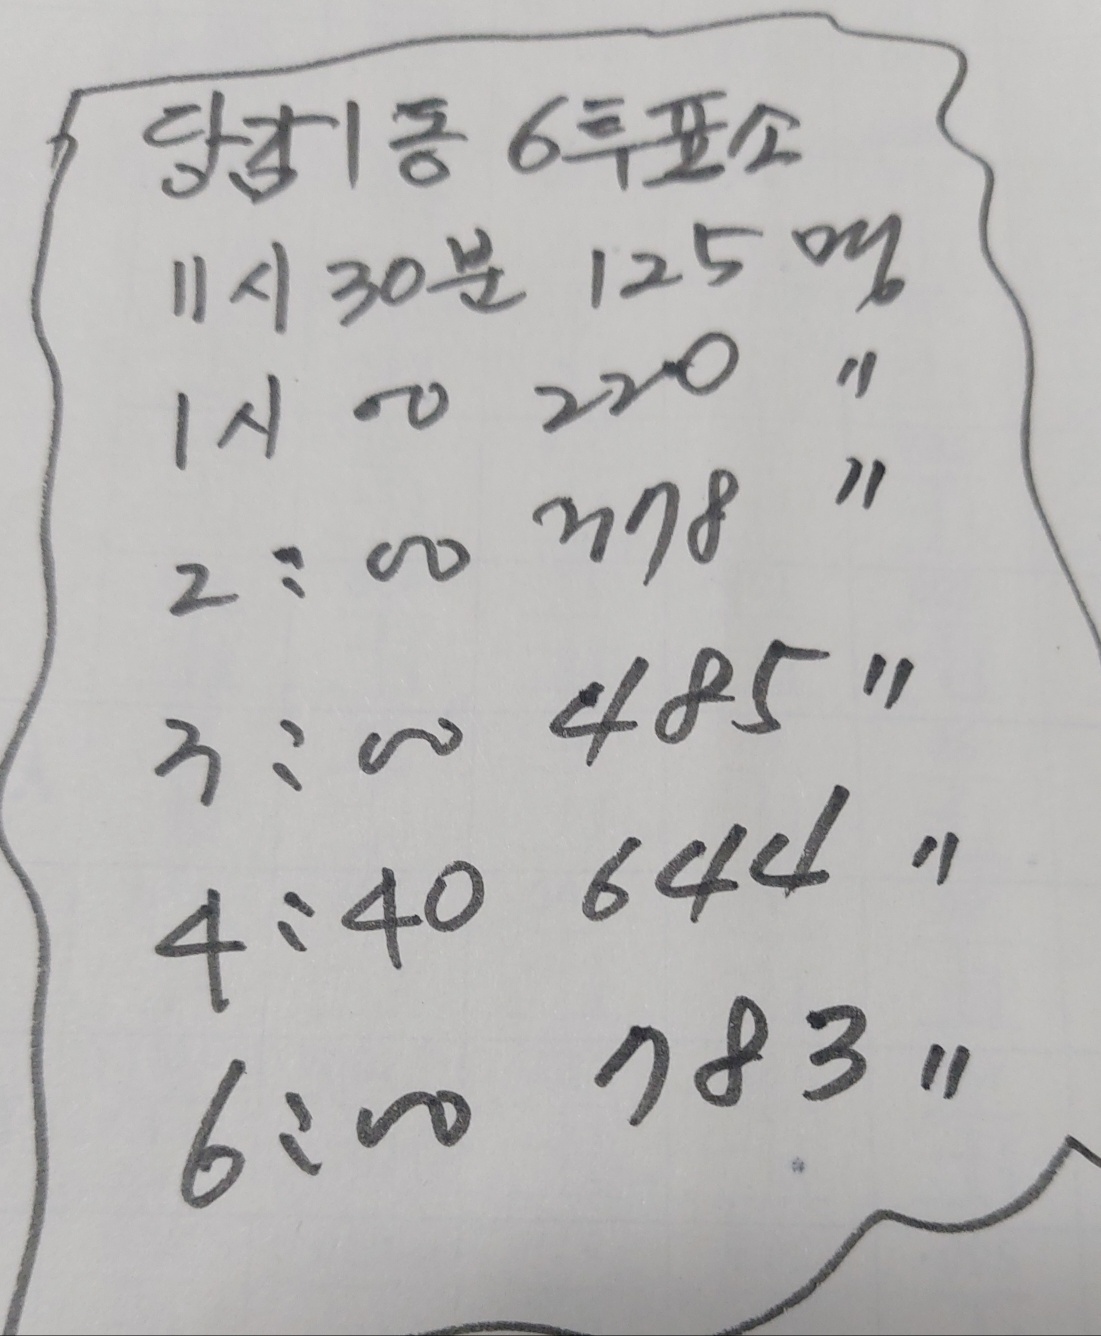 답십리1동 6투표소
11시 30분 125명
1시 00 220 "
2:00 378 "
3:00 485 "
4:40 644 "
6:00 783 "